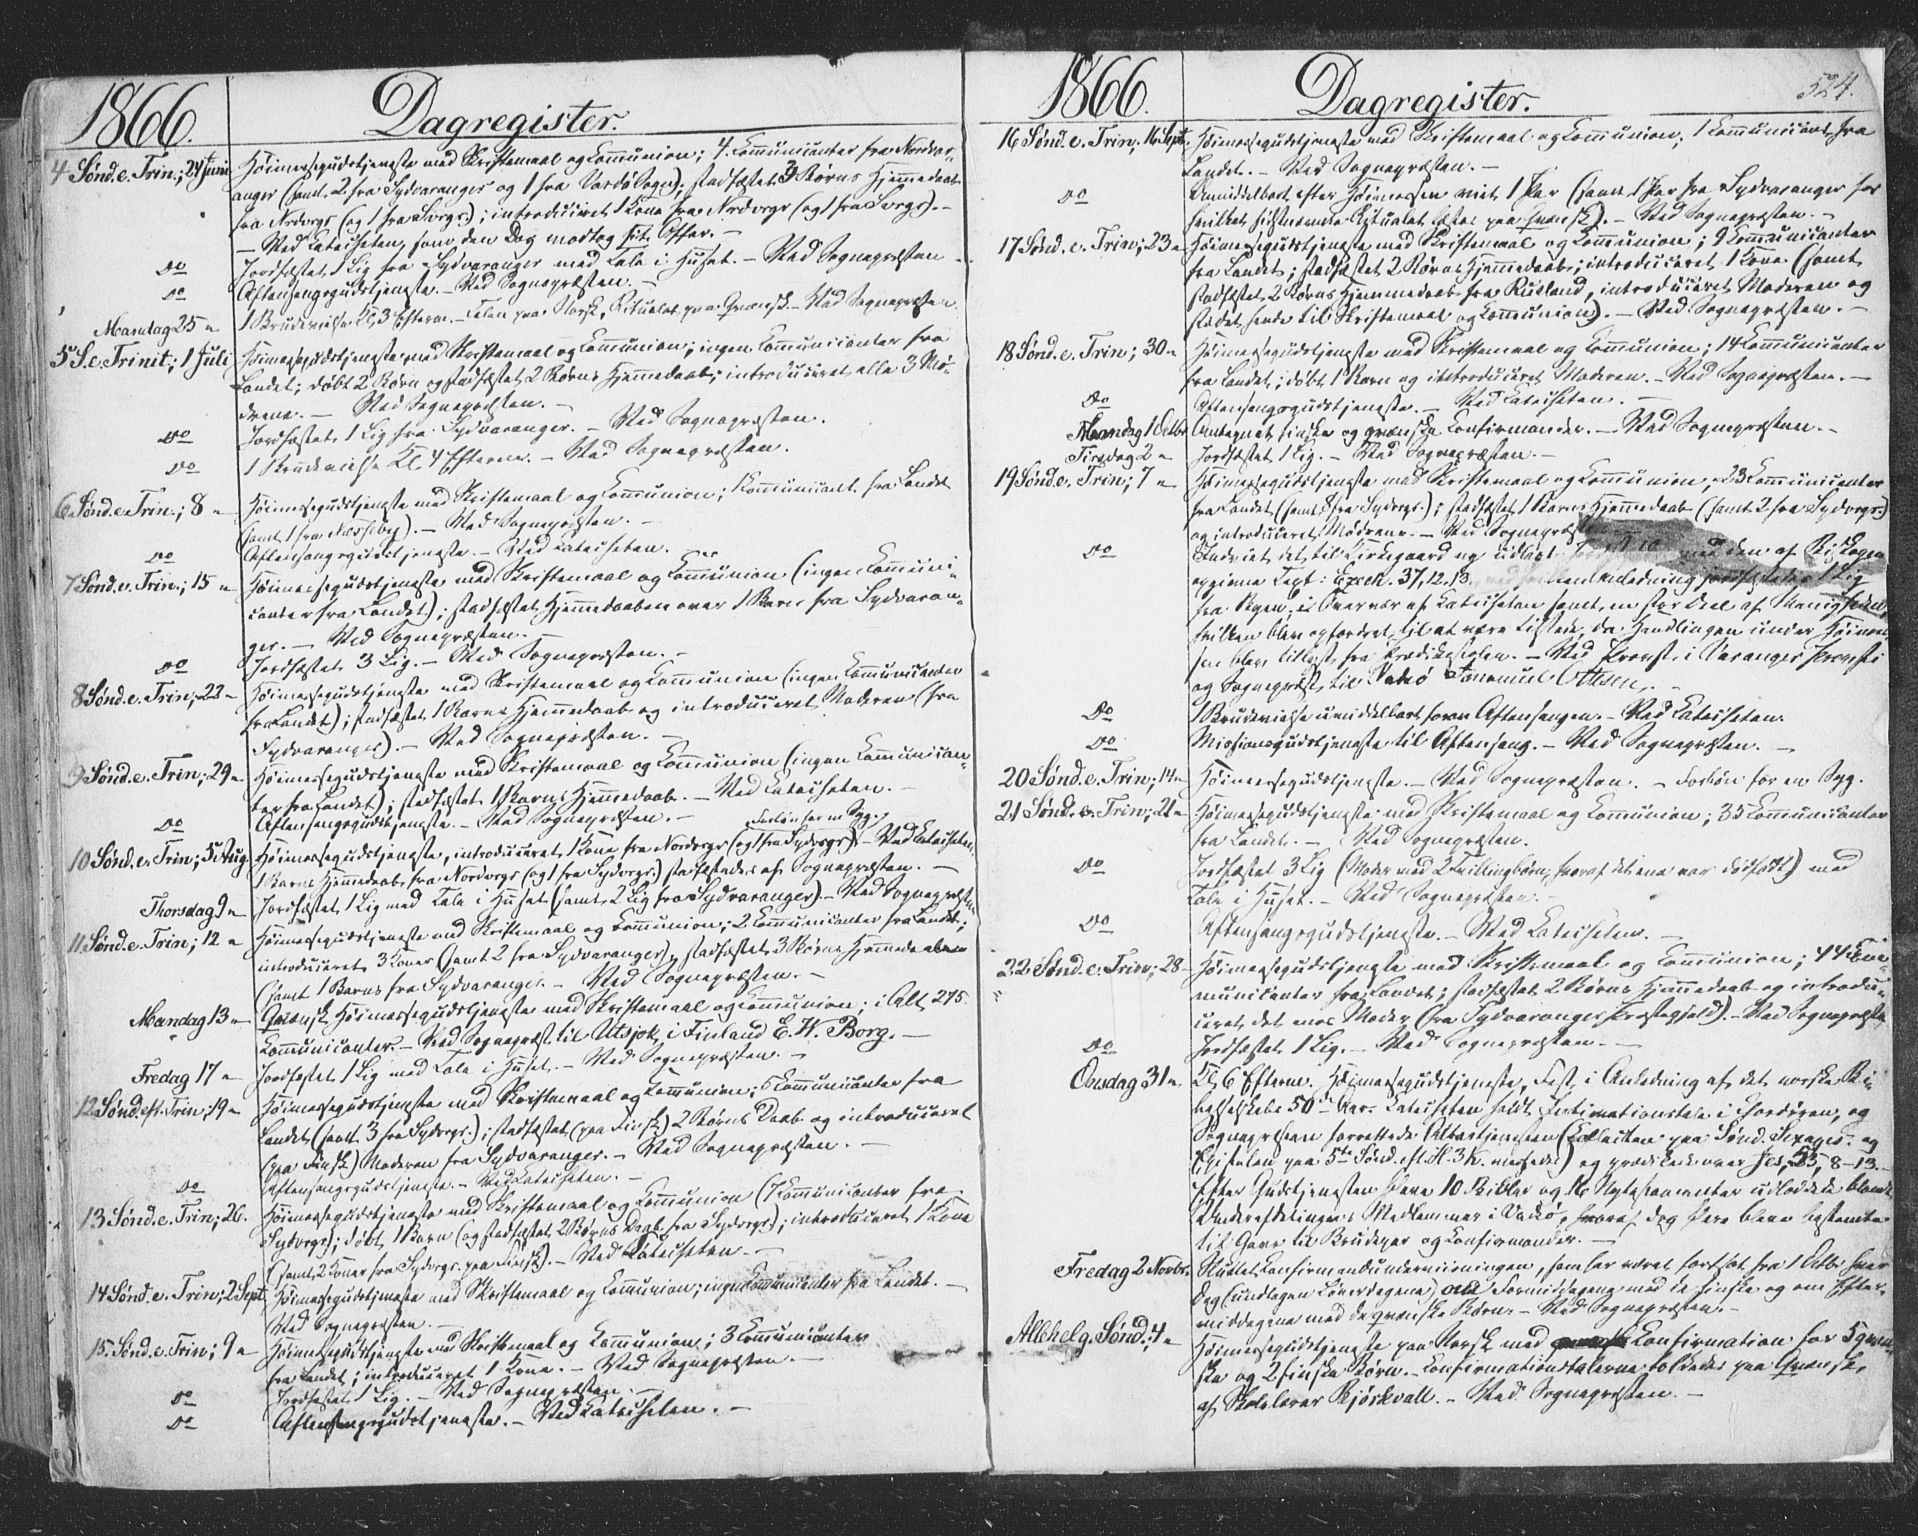 1866.
Dagregister.
4 Sønd. e. Trin.; 24 Juni
Høimessegudstjeneste med Skriftemaal og Communion; 4 Communicanter fra Nordvar-
anger (samt 2 fra Sydvaranger og 1 fra Vardø Sogn); stadfæstet 3 Børns Hjemmedaab
fra Nrdvrgr (og 1 fra Svrgr.); introduceret 1 Kone fra Nrdvrgr (og 1 fra Svrgr.). –
– Ved Catecheten, som den Dag modtog sit Offer. –
Do Jordfæstet 1 Lig fra Sydvaranger med Tale i Huset. – Ved Sognepræsten –
Do Aftensangsgudstjeneste. – Ved Sognepræsten. –
Mandag 25 " 1 Brudevielse Kl. 3 Efterm. – Talen paa Norsk, Ritualet paa Qvænsk. – Ved Sognepræsten.
5 S. e. Trinit; 1 Juli Høimessegudstjeneste med Skriftemaal og Communion; ingen Communicanter fra
Landet; døbt 2 Børn og stadfæstet 2 Børns Hjemmedaab; introduceret alle 3 Mø-
drene. – Ved Sognepræsten. –
Do Jordfæstet 1 Lig fra Sydvaranger. – Ved Sognepræsten.
Do 1 Brudevielse Kl. 4 Efterm. – Ved Sognepræsten.
6 Sønd. e. Trin.; 8 " Høimessegudstjeneste med Skriftemaal og Communion; 1 Communicant fra Landet
(samt 1 fra Næsseby). – Ved Sognepræsten. –
Do Aftensangsgudstjeneste. – Ved Catecheten.
7 Sønd. e. Trin.; 15 " Høimessegudstjeneste med Skriftemaal og Communion (ingen Communi-
canter fra Landet); stadfæstet Hjemmedaaben over 1 Barn fra Sydvaran-
ger. – Ved Sognepræsten. –
Do Jordfæstet 3 Lig. – Ved Sognepræsten. –
8 Sønd. e. Trin.; 22 " Høimessegudstjeneste med Skriftemaal og Communion (ingen Communicanter
fra Landet); stadfæstet 1 Barns Hjemmedaab og introduceret Moderen (fra
Sydvaranger). – Ved Sognepræsten. –
9 Sønd. e. Trin.; 29 " Høimessegudstjeneste med Skriftemaal og Communion (ingen Communican-
ter fra Landet); stadfæstet 1 Barns Hjemmedaab. – Ved Catecheten. –
Do Aftensangsgudstjeneste. – Ved Sognepræsten. – Forbøn for en Syg.
10 Sønd. e. Trin.; 5 Aug. Høimessegudstjeneste, introduceret 1 Kone fra Nordvrgr (og 1 fra Sydvrgr) – Ved Catecheten,
1 Barns Hjemmedaab fra Nordvrgr (og 1 fra Sydvrgr.) stadfæstedes af Sognepræsten. –
Thorsdag 9 " Jordfæstet 1 Lig med Tale i Huset (samt 2 Lig fra Sydvaranger). – Ved Sognepræsten
11 Sønd. e. Trin; 12 " Høimessegudstjeneste med Skriftemaal og Communion; 2 Communicanter fra Landet;
introduceret 3 Koner (samt 2 fra Sydvaranger), stadfæstet 3 Børns Hjemmedaab
(samt 1 Barns fra Sydvaranger. – Ved Sognepræsten. –
Mandag 13 " Qvænsk Høimessegudstjeneste med Skriftemaal og Communion; i Alt 275
Communicanter. – Ved Sognepræst til Utsjok i Finland E. W. Borg. –
Fredag 17 " Jordfæstet 1 Lig med Tale i Huset. – Ved Sognepræsten. –
12 Sønd. eft. Trin.; 19 " Høimessegudstjeneste med Skriftemaal og Communion; 6 Communicanter fra
Landet (samt 3 fra Sydvrgr.); stadfæstet (paa Finsk) 2 Børns Daab og introduceret
(paa Finsk) Moderen fra Sydvaranger. – Ved Sognepræsten. –
Do Aftensangsgudstjeneste. – Ved Catecheten. –
13 Sønd. e. Trin; 26. Høimessegudstjeneste med Skriftemaal og Communion (7 Communicanter fra
Sydvrgr); døbt 1 Barn (og stadfæstet 2 Børns Daab fra Sydvrgr); introduceret 1 Kone
(samt 2 Koner fra Sydvrgr. paa Finsk). – Ved Catecheten. –
14 Sønd. e. Trin; 2 Sept Høimessegudstjeneste med Skriftemaal og Communion; ingen Communicanter fra Landet. –
Ved Sognepræsten. –
15. Sønd. e. Trin; 9 " Høimessegudstjeneste med Skriftemaal og Communion; 3 Communicanter
fra Landet; introduceret 1 Kone. – Ved Sognepræsten. –
Do Jordfæstet 1 Lig. – Ved Sognepræsten. –
Do Aftensangsgudstjeneste. – Ved Catecheten. –
1866.
Dagregister.
524.
16 Sønd. e. Trin; 16 Sept. Høimessegudstjeneste med Skriftemaal og Communion; 1 Communicant fra
Landet. – Ved Sognepræsten. –
Do Umiddelbart efter Høimessen viet 1 Par (samt 1 Par fra Sydvaranger for
hvilket sidstnævnte Ritualet læstes paa Finsk). – Ved Sognepræsten. –
17 Sønd. e. Trin; 23 " Høimessegudstjeneste med Skriftemaal og Communion; 9 Communicanter
fra Landet; stadfæstet 2 Børns Hjemmedaab; introduceret 1 Kone (samt
stadfæstet 2 Børns Hjemmedaab fra Rusland, introduceret Moderen og
stedet hende til Skriftemaal og Communion). – Ved Sognepræsten. –
18 Sønd. e. Trin; 30 " Høimessegudstjeneste med Skriftemaal og Communion; 14 Communicanter
fra Landet; døbt 1 Barn og introduceret Moderen. – Ved Sognepræsten. –
Do Aftensangsgudstjeneste. – Ved Catecheten. –
Mandag 1 Octbr Antegnet finske og qvænske Confirmander. – Ved Sognepræsten. –
Tirsdag 2 " Jordfæstet 1 Lig. – Ved Sognepræsten. –
19 Sønd. e. Trin; 7 " Høimessegudstjeneste med Skriftemaal og Communion, 23 Communicanter
fra Landet (samt 8 fra Sydvrgr.); stadfæstet 1 Barns Hjemmedaab (samt 2 fra Sydvrgr.)
og introduceret Mødrene. – Ved Sognepræsten
Do Indviet det til Kirkegaard ny udlagt med den af Biskopen
opgivne Text: Ezech. 37, 12. 13. ved hvilken Anledning jordfæstedes 1 Lig
fra Byen, i Overvær af Catecheten samt en stor Deel af Menigheden,
hvilken blev opfordret til at være tilstede, da Handlingen under Høimes-
sen blev tillyst fra Prædikestolen. – Ved Provst i Varanger Provsti
og Sognepræst til Vadsø Immanuel Ottesen. –
Do 1 Brudevielse umiddelbart foran Aftensangen. – Ved Catecheten.
Do Missionsgudstjeneste til Aftensang. – Ved Sognepræsten. –
20 Sønd. e. Trin; 14 " Høimessegudstjeneste. – Ved Sognepræsten. – Forbøn for en Syg.
21 Sønd. e. Trin; 21 " Høimessegudstjeneste med Skriftemaal og Communion; 35 Communicanter
fra Landet. – Ved Sognepræsten.
Do Jordfæstet 3 Lig (Moder med 2 Tvillingbørn, hvoraf det ene var dødfødt) med
Tale i Huset. – Ved Sognepræsten. –
Do Aftensangsgudstjeneste. – Ved Catecheten. –
22 Sønd. e. Trin; 28 – Høimessegudstjeneste med Skriftemaal og Communion; 44 Com-
municanter fra Landet; stadfæstet 2 Børns Hjemmedaab og introdu-
ceret det enes Moder (fra Sydvaranger Præstegjeld). – Ved Sognepræsten
Do Jordfæstet 1 Lig. – Ved Sognepræsten. –
Onsdag 31 " Kl. 6 Efterm. Høimessegudstjeneste, Fest i Anledning af det norske Bi-
belselskabs 50de Aar. Catecheten holdt Intimationstale i Chordøren, og
Sognepræsten forrettede Altertjenesten (Collecten paa Sønd. Sexages. og
Epistelen paa 5te Sønd. eft. H. 3 K. messedes) og prædikede over Jes. 55, 8–13. –
Efter Gudstjenesten bleve 10 Bibler og 16 Nytestamenter uddelte blandt
Underafdelingens Medlemmer i Vadsø, hvoraf dog flere bleve bestemte
til Gave til Brudepar og Confirmander. –
Fredag 2 Novbr. Sluttet Confirmandunderviisningen, som har været fortsat fra 1 Octbr hver
Dag (undtagen Løverdagene) om Formiddagene med de finske og om Efter-
middagene med de qvænske Børn. – Ved Sognepræsten. –
Allehelg. Sønd; 4 " Høimessegudstjeneste paa Norsk med Confirmation for 5 qvæn-
ske og 2 finske Børn. – Confirmationstalerne tolkedes paa Qvænsk
af Skolelærer Bjørkvall. – Ved Sognepræsten. –